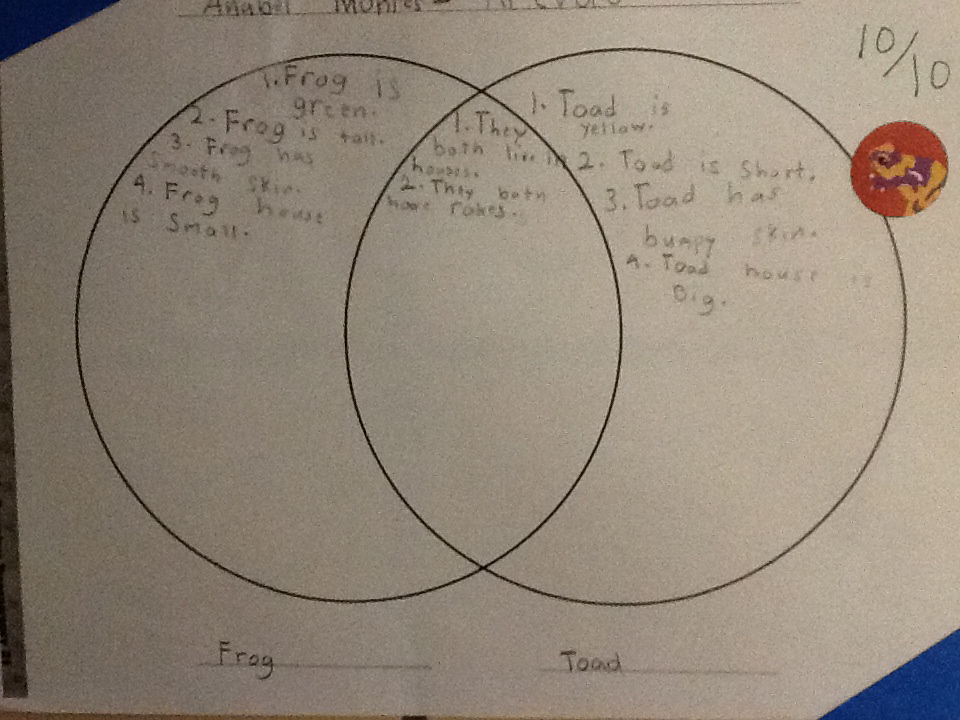 Anabel
10/10
1. Frog is
green.
2. Frog is tall.
3. Frog has
smooth skin.
4. Frog house
is small.
1. They
both live in
houses.
2. They both
have rakes.
1. Toad is
yellow.
2. Toad is short.
3. Toad has
bumpy skin.
4. Toad house is
Big.
Frog
Toad